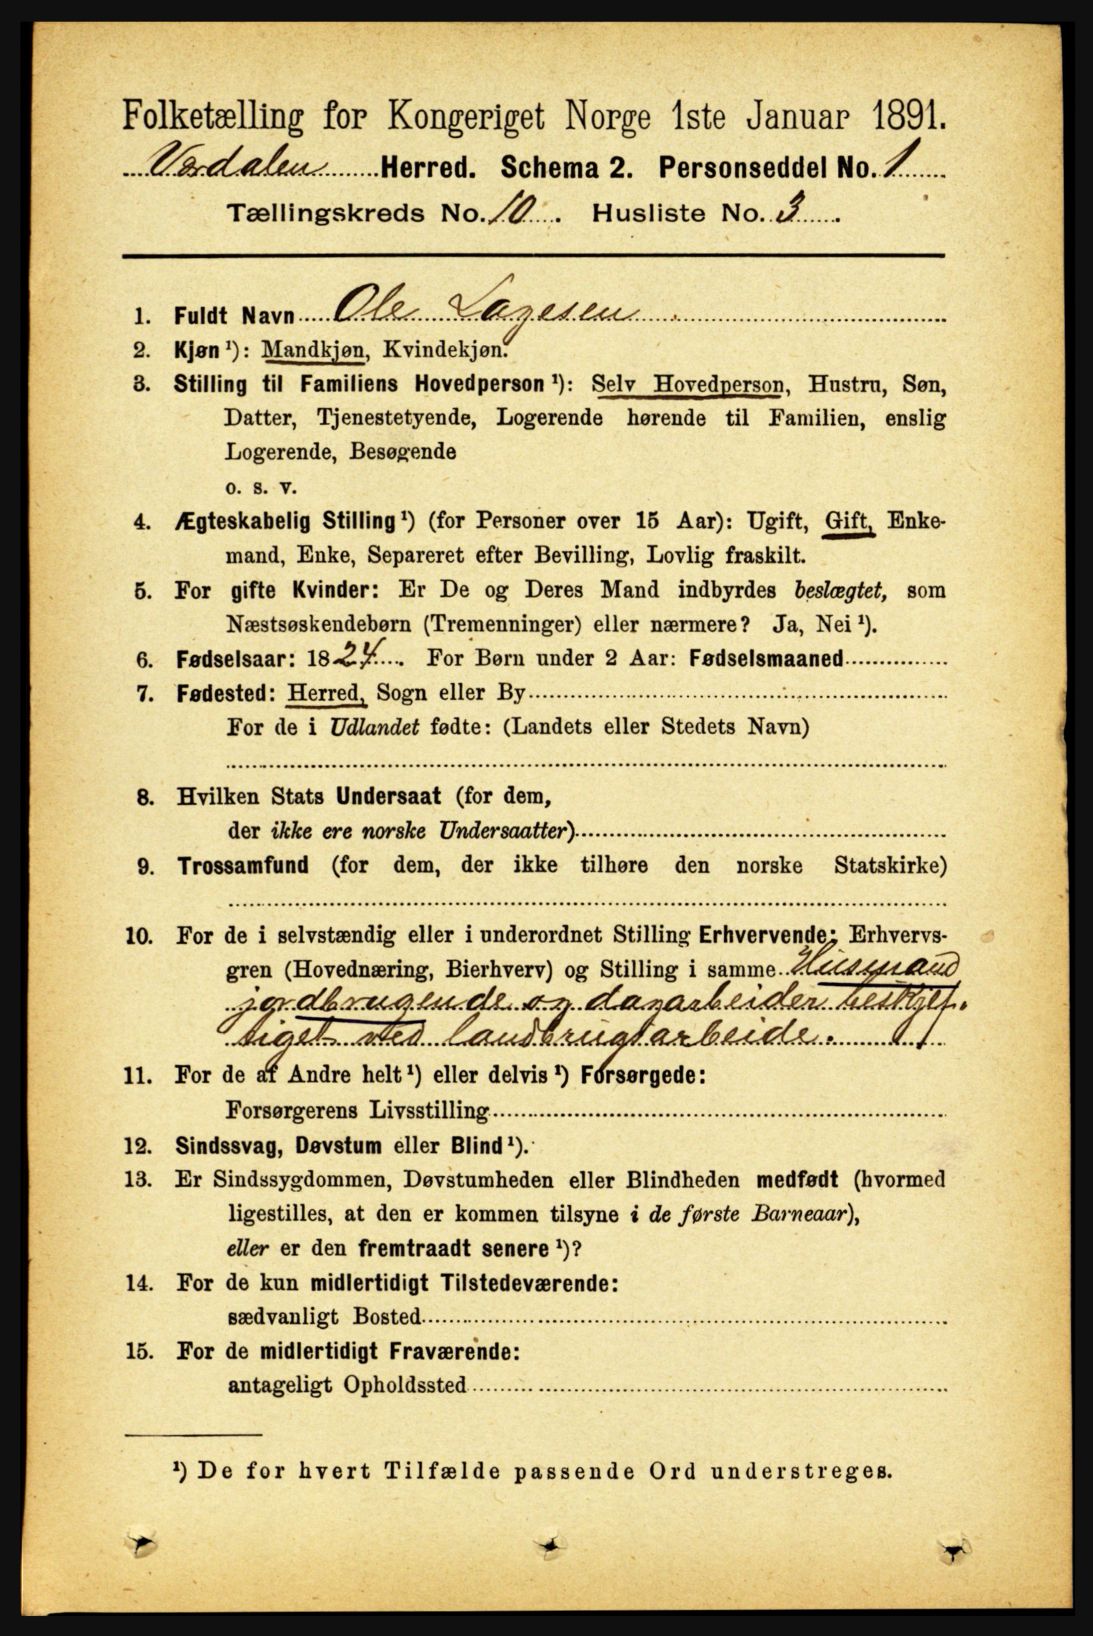 Folketælling for Kongeriget Norge 1ste Januar 1891.
Værdalen Herred. Schema 2. Personseddel No. 1
Tællingskreds No. 10. Husliste No. 3.
1. Fuldt Navn Ole Lagesen
2. Kjøn ¹): Mandkjøn, Kvindekjøn.
3. Stilling til Familiens Hovedperson ¹): Selv Hovedperson, Hustru, Søn,
Datter, Tjenestetyende, Logerende hørende til Familien, enslig
Logerende, Besøgende
o. s. v.
4. Ægteskabelig Stilling ¹) (for Personer over 15 Aar): Ugift, Gift, Enke-
mand, Enke, Separeret efter Bevilling, Lovlig fraskilt.
5. For gifte Kvinder: Er De og Deres Mand indbyrdes beslægtet, som
Næstsøskendebørn (Tremenninger) eller nærmere? Ja, Nei ¹).
6. Fødselsaar: 1824. For Børn under 2 Aar: Fødselsmaaned
7. Fødested: Herred, Sogn eller By
For de i Udlandet fødte: (Landets eller Stedets Navn)
8. Hvilken Stats Undersaat (for dem,
der ikke ere norske Undersaatter)
9. Trossamfund (for dem, der ikke tilhøre den norske Statskirke)
10. For de i selvstændig eller i underordnet Stilling Erhvervende: Erhvervs-
gren (Hovednæring, Bierhverv) og Stilling i samme Husmand
jordbrugende og dagarbeider beskjef-
tiget ved landbrugsarbeide.
11. For de af Andre helt ¹) eller delvis ¹) Forsørgede:
Forsørgerens Livsstilling
12. Sindssvag, Døvstum eller Blind ¹).
13. Er Sindssygdommen, Døvstumheden eller Blindheden medfødt (hvormed
ligestilles, at den er kommen tilsyne i de første Barneaar),
eller er den fremtraadt senere ¹)?
14. For de kun midlertidigt Tilstedeværende:
sædvanligt Bosted
15. For de midlertidigt Fraværende:
antageligt Opholdssted
¹) De for hvert Tilfælde passende Ord understreges.